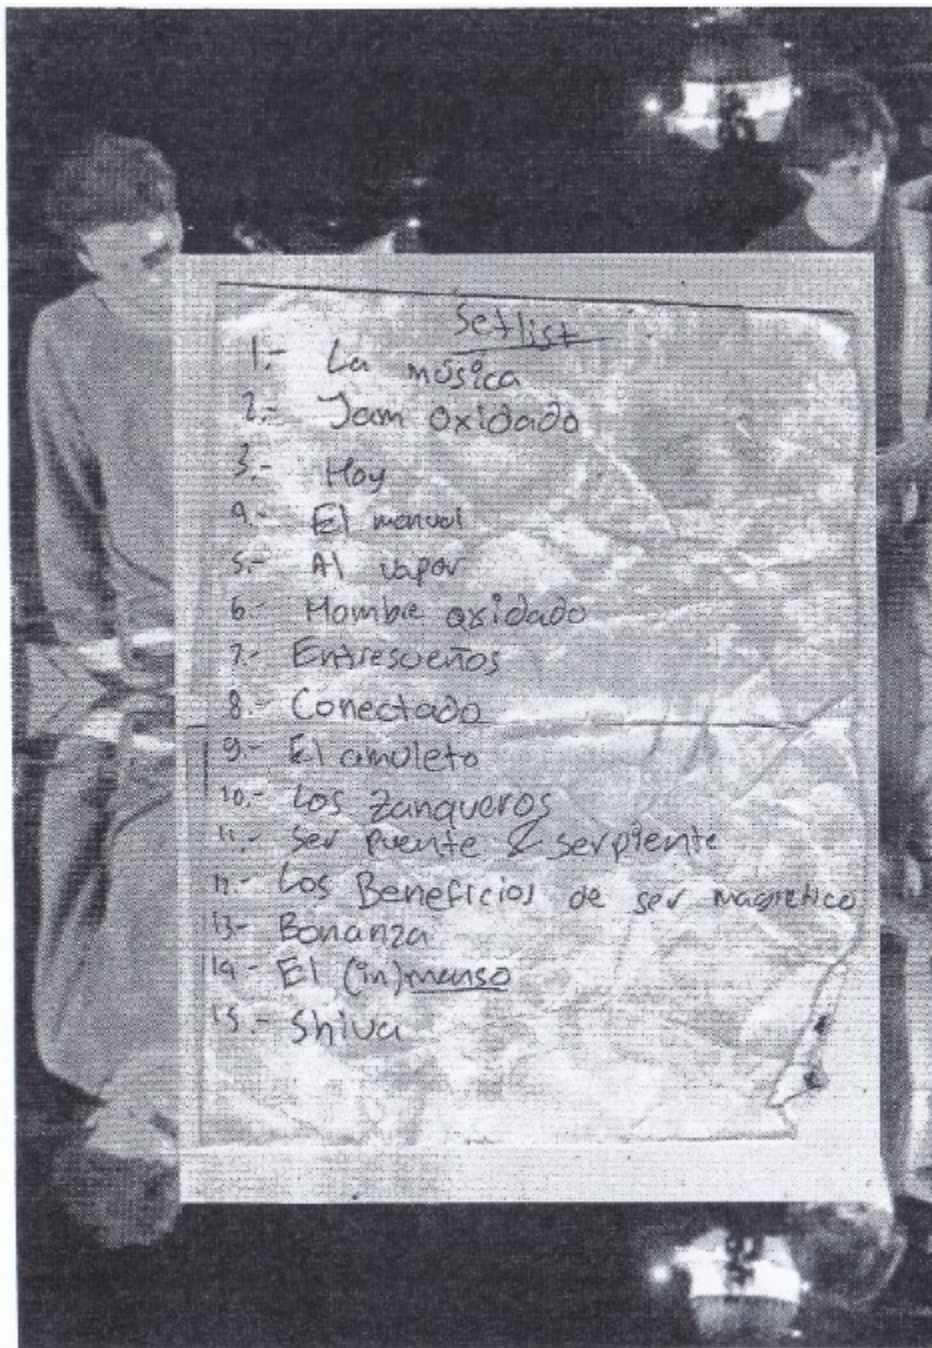 Setlist
1.- La música
2.- Jam oxidado
3.- Hoy
4.- El manual
5.- Al vapor
6.- Hombre oxidado
7.- Entresueños
8.- Conectado
9.- El amuleto
10.- Los Zanqueros
11.- Ser puente & serpiente
12.- Los Beneficios de ser magnético
13.- Bonanza
14.- El (in)menso
15.- Shiva